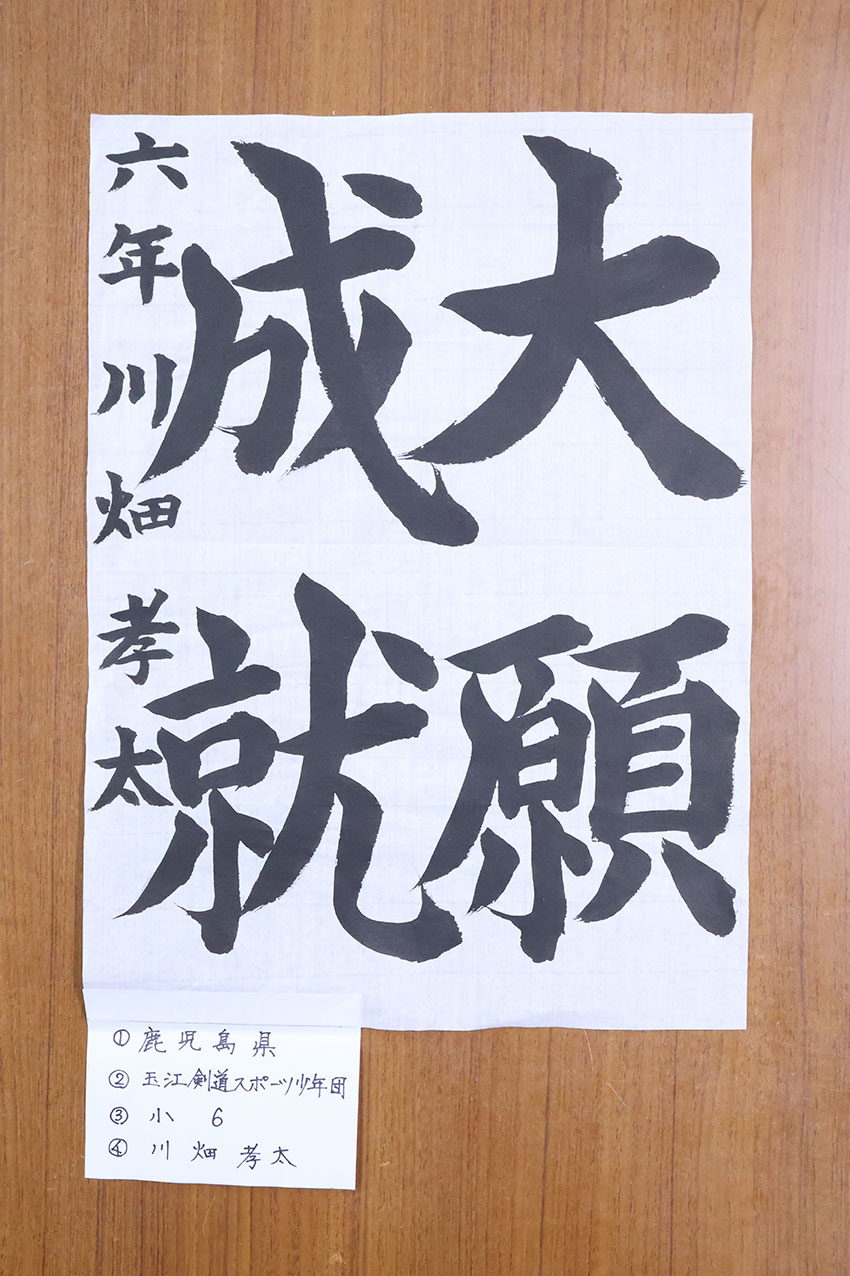 大願
成就
六年 川畑孝太
① 鹿児島県
② 玉江剣道スポーツ少年団
③ 小 6
④ 川畑孝太